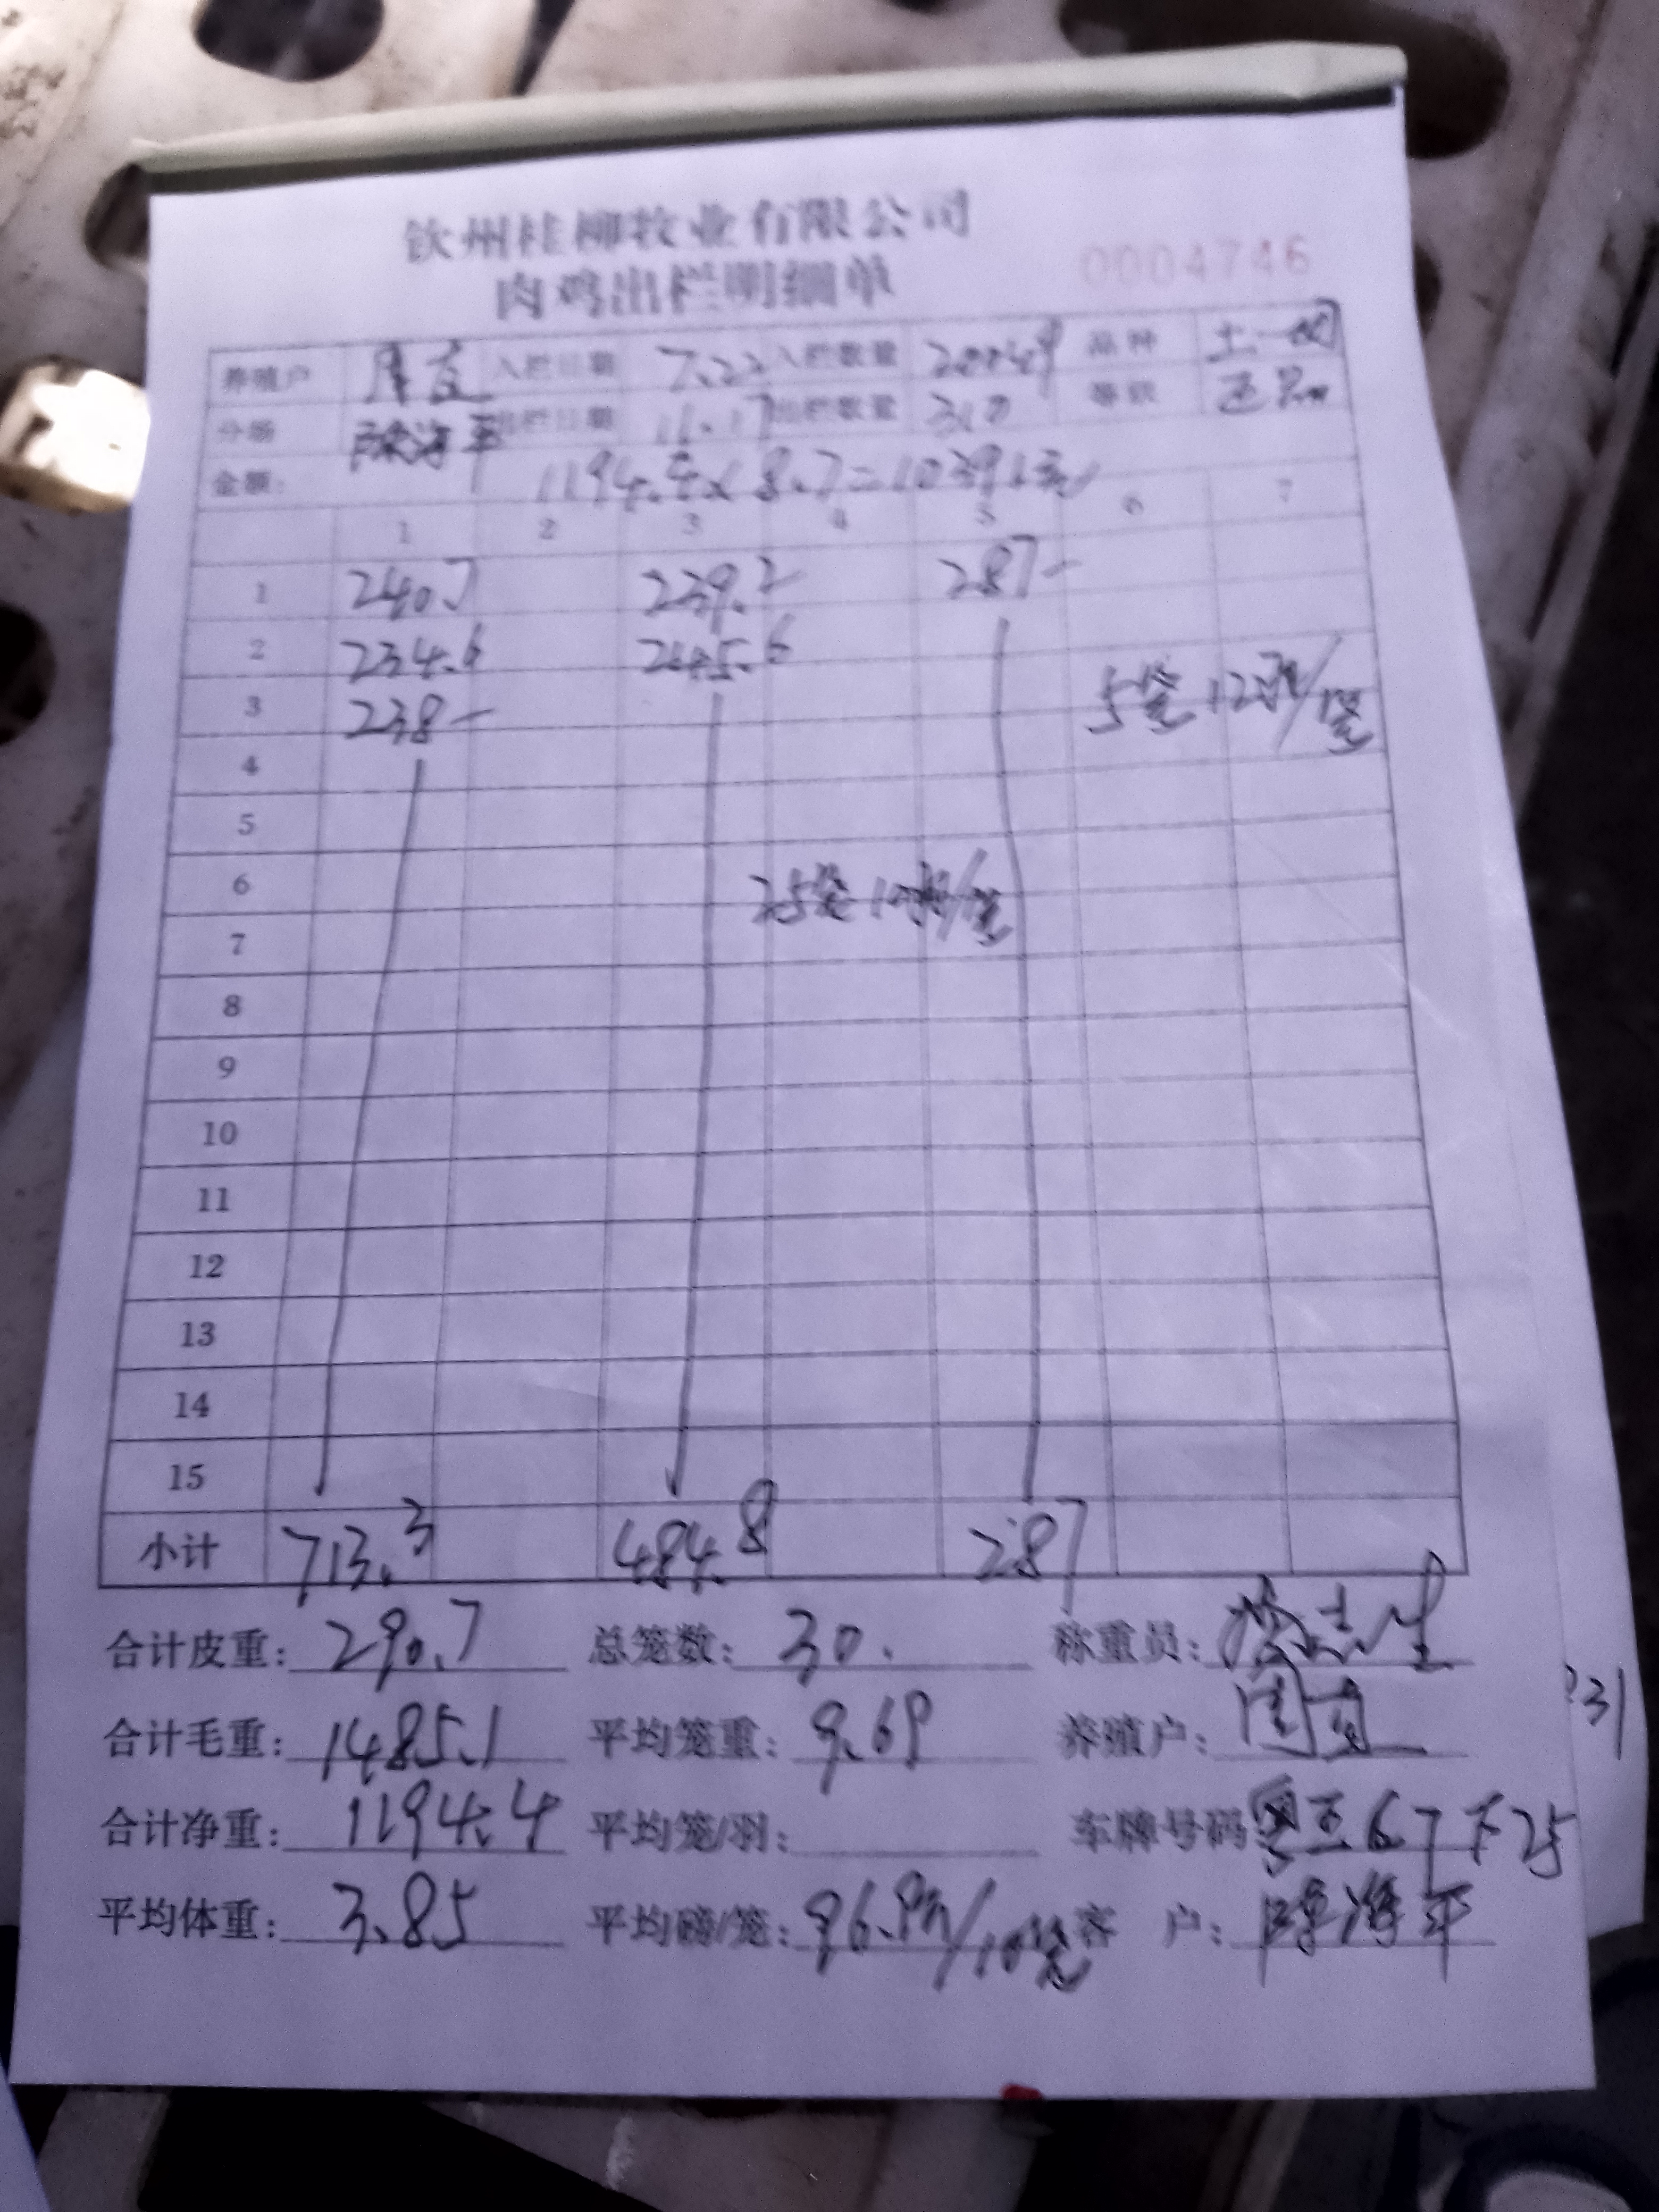 钦州桂柳牧业有限公司
肉鸡出栏明细单
0004746
养殖户 入栏日期 7.22 入栏数量 品种 土一
分场 陈海平 出栏日期 11.17 出栏数量 310 等级 正品
金额: 1194.4×8.7=10391元
1 2 3 4 5 6 7
1 240.7 239.2 287-
2 234.6 245.6
3 238- 5笼12羽/笼
4
5
6 25笼10羽/笼
7
8
9
10
11
12
13
14
15
小计 713.3 484.8 287
合计皮重: 290.7 总笼数: 30. 称重员:
合计毛重: 1485.1 平均笼重: 9.69 养殖户:
合计净重: 1194.4 平均笼/羽: 车牌号码
平均体重: 3.85 平均磅/笼: 96.9斤/10笼 客 户: 陈海平
231